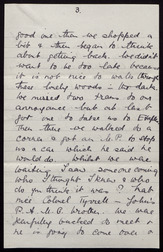 3.
good one then we shopped a
bit & then began to think
about getting back. We didn't
want to be too late because
it is not nice to walk through
those lonely woods in the dark.
We missed two trams to our
annoyance but at last
got one to take us to
Then we walked to a
corner & got an M.P. to stop
us a car which he said he
would do. Whilst we were
waiting I saw someone coming
who I thought I knew & who
do you think it was? That
nice Colonel Tyrrell - John's
R.A.M.C. brother. We were
fearfully pleased to meet &
he is going to come over &